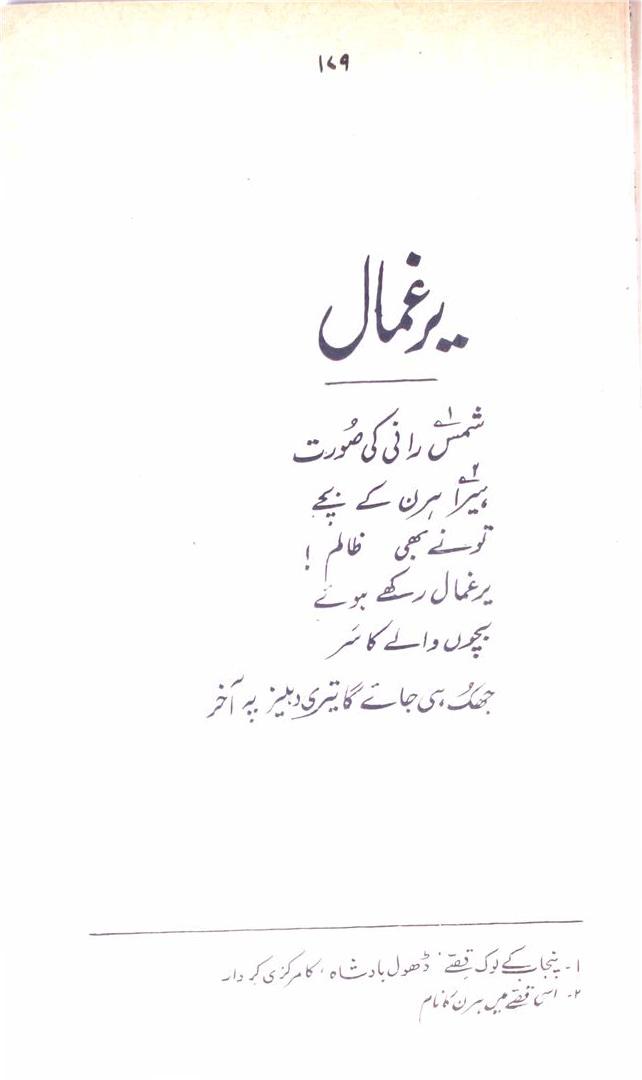 ۱۷۹
یرغمال
شمس۱؎ رانی کی صُورت
ہیرا۲؎ ہرن کے بچّے
تو نے بھی ظالم !
یرغمال رکھے ہوئے
بچوں والے کا سَر
جھکُ ہی جائے گا تیری دہلیز پہ آخر
۱۔ پنجاب کے لوک قصّے ' ڈھول بادشاہ ' کا مرکزی کردار
۲۔ اسی قصّے میں ہرن کا نام